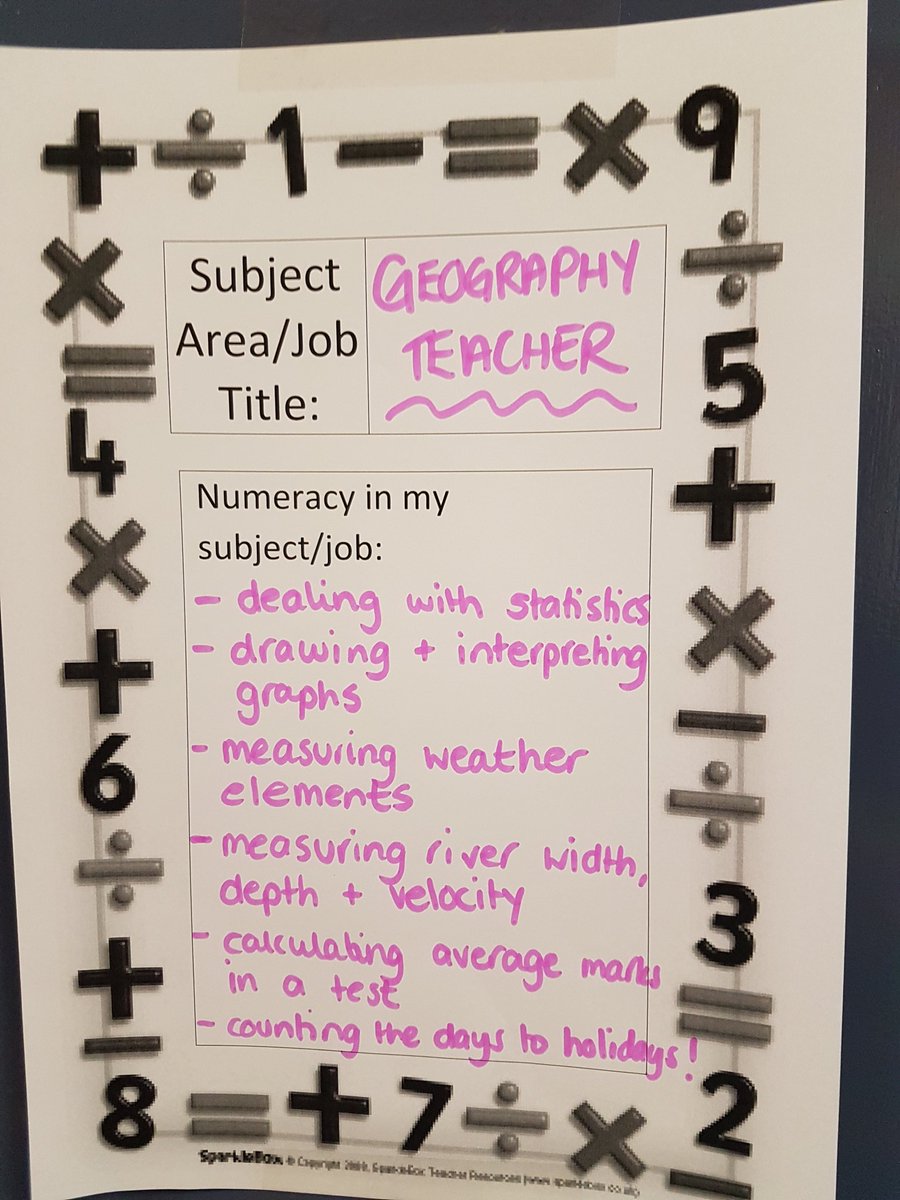 + ÷ 1 - = × 9
Subject
Area/Job
Title:
GEOGRAPHY
TEACHER
× = 4 × + 6 ÷ + -
÷ 5 + × - ÷ 3 = 2 -
Numeracy in my
subject/job:
- dealing with statistics
- drawing + interpreting
graphs
- measuring weather
elements
- measuring river width,
depth + velocity
- calculating average marks
in a test
- counting the days to holidays!
8 = + 7 ÷ ×
SparkleBox © Copyright SparkleBox Teacher Resources